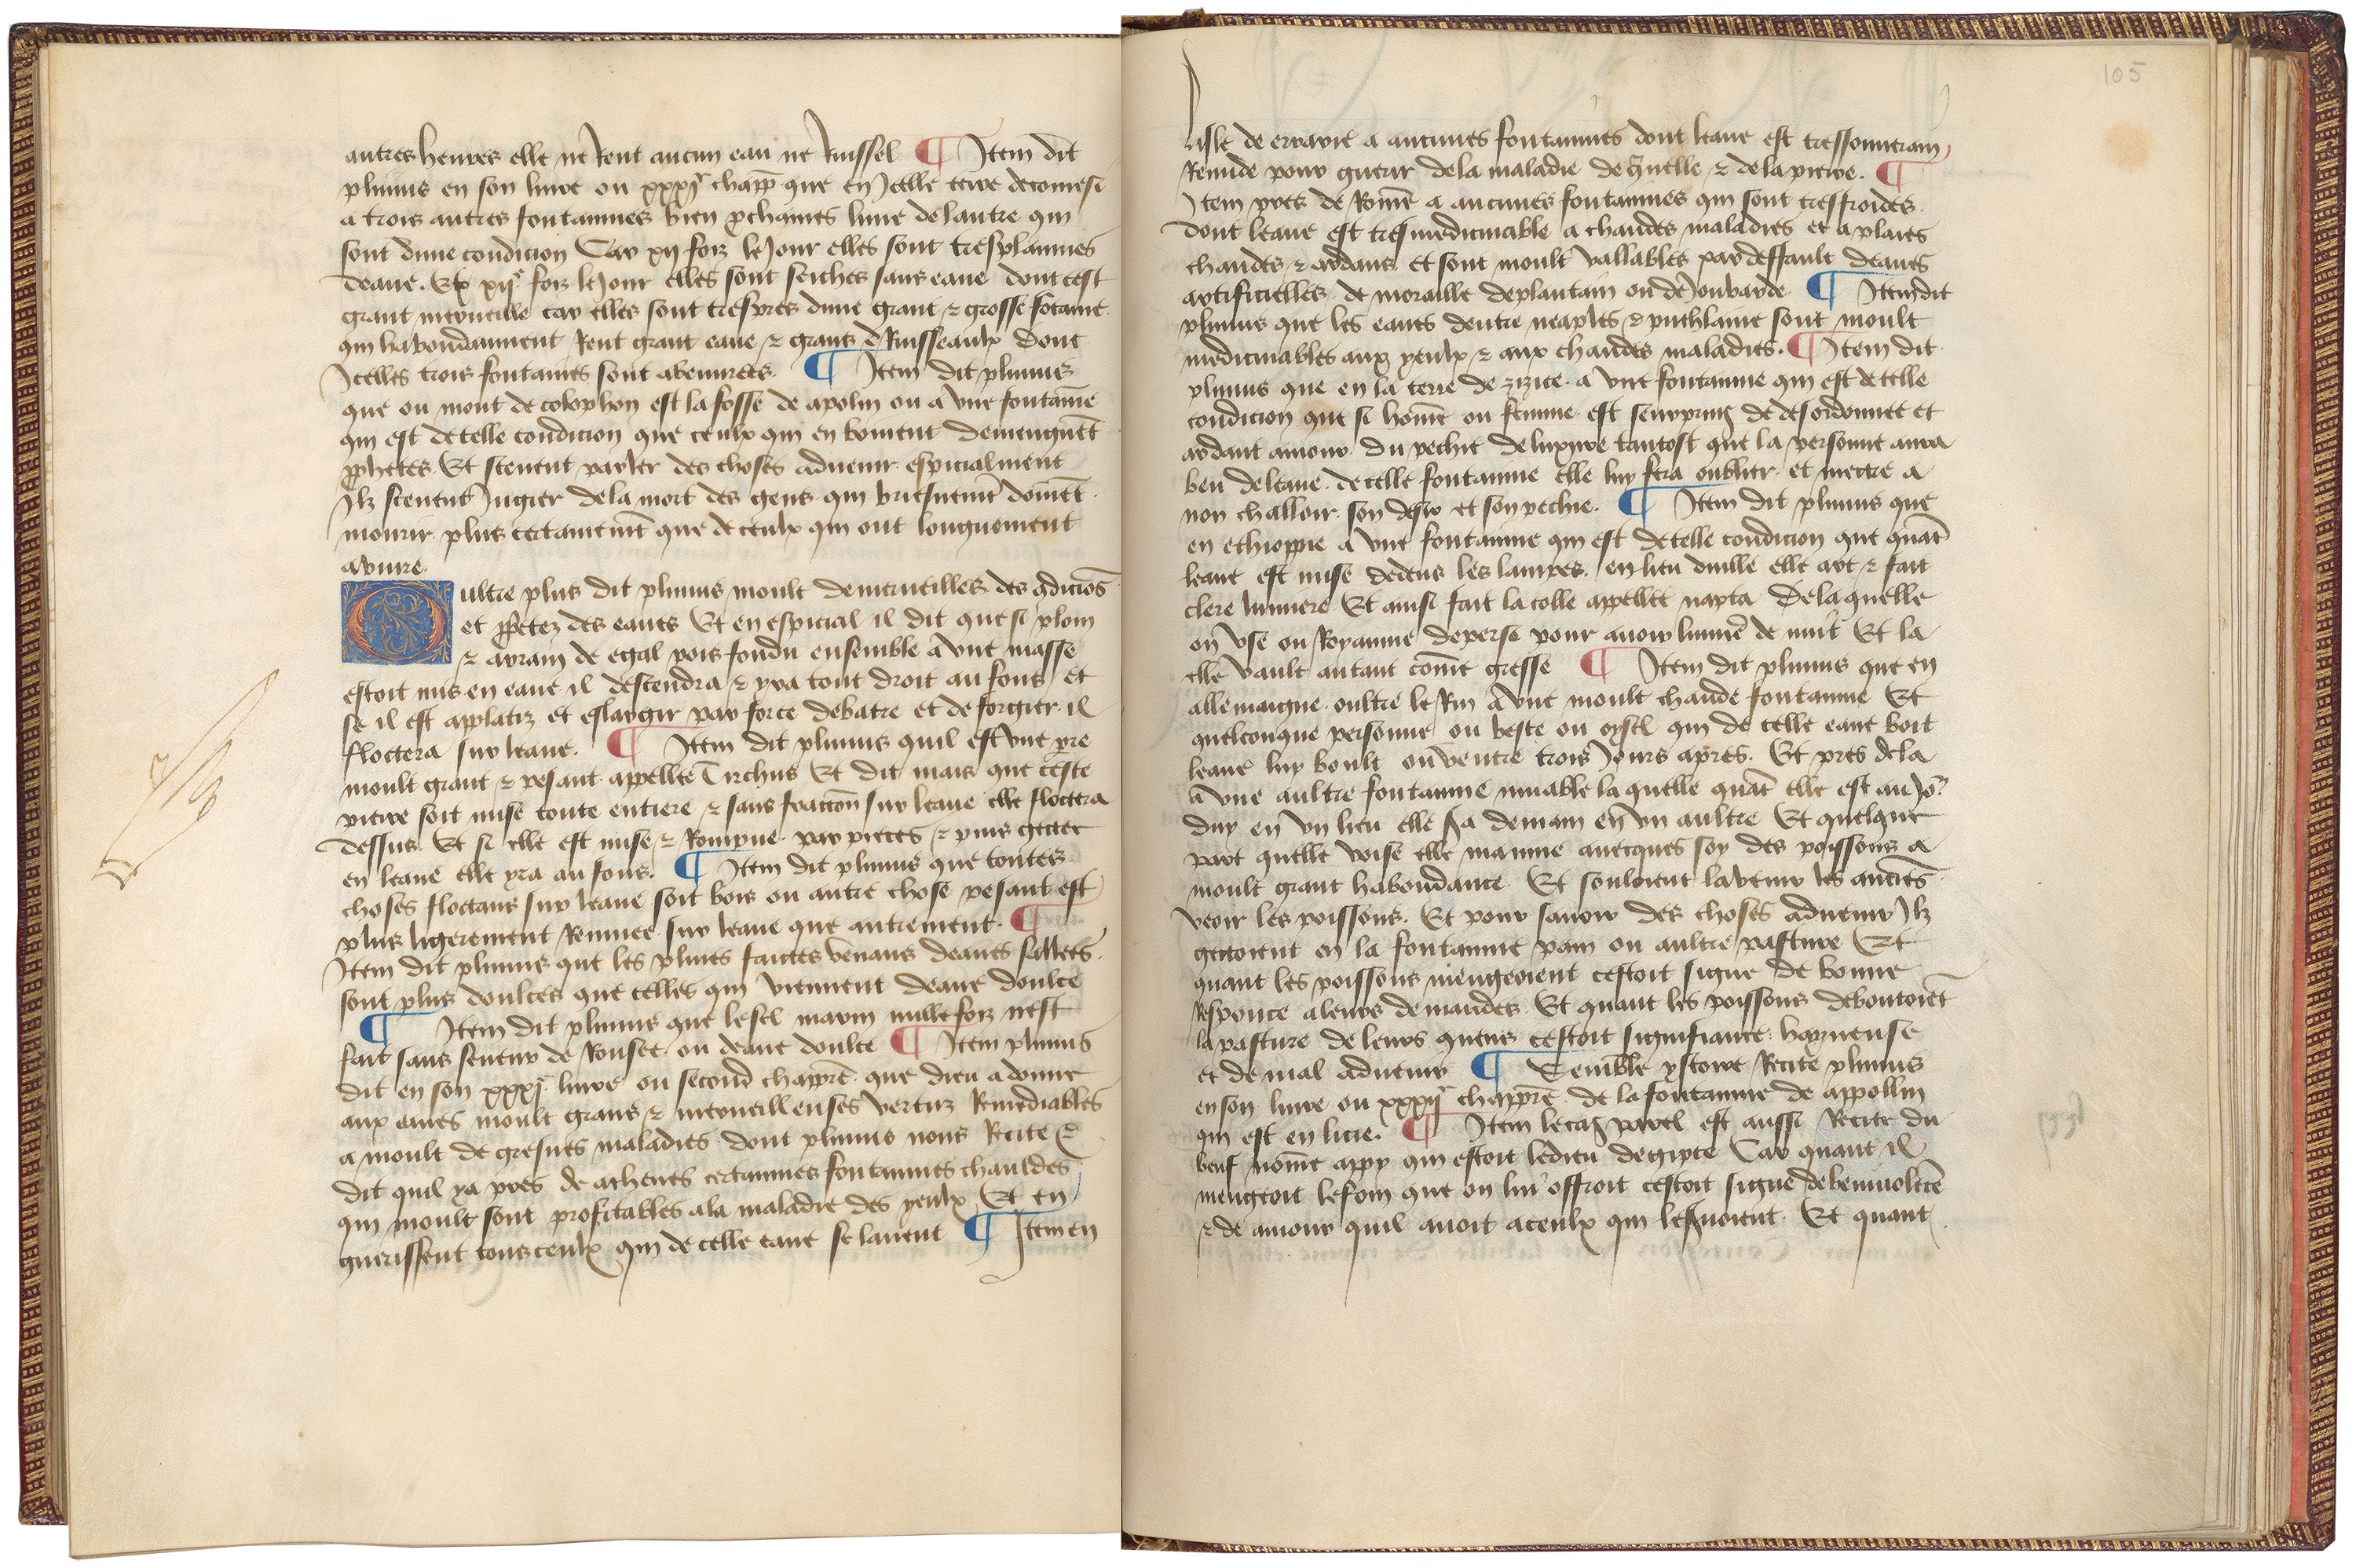 autres heures elle ne Rent aucun eau ne Ruissel ¶ Item dit
plinius en son livre ou xxxiᵉ chapp̄ que en Icelle terre
a trois autres fontainnes bien ꝓchaines lune de lautre qui
sont dune condicion Car xij foiz le Jour elles sont tresplainnes
deaue. Et xijᵉ foiz le Jour elles sont seiches sans eaue dont cest
grant merveille car elles sont trespres dune grant ⁊ grosse fōtaine
qui habondanment Rent grant eaue ⁊ grans Ruisseaulx dont
Icelles trois fontaines sont abeuurees. ¶ Item dit plinius
que ou mont de colophon est la fosse de apolin ou a vne fontainne
qui est de telle condicion que ceulx qui en boiuent deuiennent
ꝓphetes Et sceuent parler des choses aduenir especialment
Ilz sceuent Jugier de la mort des gens qui briefuemēt doiuēt
mourir plus certainemēt que de ceulx qui ont longuement
a viure
Oultre plus dit plinius moult de merueilles des ꝯdicions
et ꝓpretez des eaues Et en especial il dit que se plom
⁊ arain de egal pois fondu ensemble a vne masse
estoit mis en eaue il descendra ⁊ yra tout droit au fons Et
se il est applatiz et eslargir par force de batre et de forgier il
floctera sur leaue. ¶ Item dit plinius quil est vne pre
moult grant ⁊ pesant appellee Tirchus Et dit mais que ceste
pierre soit mise toute entiere ⁊ sans fraccion sur leaue elle floctera
dessus Et se elle est mise ⁊ Rompue par pieces ⁊ puis gettee
en leaue elle yra au fons. ¶ Item dit plinius que toutes
choses floctans sur leaue soit bois ou autre chose pesant est
plus ligerement Remuee sur leaue que autrement. ¶
Item dit plinius que les pluies faictes venans deaues sallees
sont plus doulces que celles qui viennent deaue doulce
¶ Item dit plinius que le sel marin nulle foiz nest
fait sans senteur de Rousee ou deaue doulce ¶ Item plinius
dit en son xxxiᵉ livre ou second chappr̄e que dieu a donne
aux eaues moult grans ⁊ merueilleuses vertuz Remediables
a moult de griefues maladies dont plinius nous Recite ⁊
dit quil ya pres de athenes certainnes fontainnes chauldes
qui moult sont profitables ala maladie des yeulx Et en
guerissent tous ceulx qui de celle eaue se lauent ¶ Item en
105
lisle de a aucunes fontainnes dont leaue est tressouuerain
Remide pour guerir de la maladie de ⁊ de la pierre. ¶
Item pres de Rōme a aucunes fontainnes qui sont tresfroides
dont leaue est tres medicinable a chaudes maladies et a plaies
chaudes ⁊ ardans Et sont moult vallables par deffault deaues
artificielles de moraille de plantain ou de Joubarde ¶ Item dit
plinius que les eaues dentre neaples ⁊ puthlaine sont moult
medicinables aux yeulx ⁊ aux chaudes maladies. ¶ Item dit
plinius que en la terre de zizice a vne fontainne qui est de telle
condicion que se homē ou femme est seurpring de desordonnee et
ardant amour du pechie de luxure tantost que la personne aura
beu de leaue de celle fontainne elle luy fera oublier et mectre a
non challoir son desir et son pechie. ¶ Item dit plinius que
en ethioppie a vne fontainne qui est de telle condicion que quāt
leaue est mise dedens les lampes en lieu duille elle art ⁊ fait
clere lumiere Et ainsi fait la colle appellee napta De laquelle
on vse ou Royaume de perse pour auoir lumiē de nuit Et la
elle vault autant comē gresse ¶ Item dit plinius que en
allemaigne oultre le Rin a vne moult chaude fontainne Et
quelconque personne ou beste ou oysel qui de celle eaue boit
leaue luy boult ou ventre trois Jours apres. Et pres de la
a vne aultre fontainne muable la quelle quāt elle est au Jo
duy en vn lieu elle ſa demain en vn aultre Et quelque
part quelle voise elle mainne auecques soy des poissons a
moult grant habondance Et souloient la venir les anciēs
veoir les poissons. Et pour sauoir des choses aduenir Ilz
gettoient en la fontainne pain ou aultre pasture Et
quant les poissons mengeoient cestoit signe de bonne
Responce a leurs demandes Et quant les poissons deboutoiēt
la pasture de leurs queues cestoit signifiance hayneuse
et de mal aduenir ¶ Semble ystoire Recite plinius
en son livre ou xxxijᵉ chappr̄e de la fontainne de appollin
qui est en licie. ¶ Item le cas pareil est aussi Recite du
beuf nomē appy qui estoit le dieu degipte Car quant il
mengeoit le foin que on lui offroit cestoit signe de beniuolēce
⁊ de amour quil auoit a ceulx qui le ſuoient Et quant